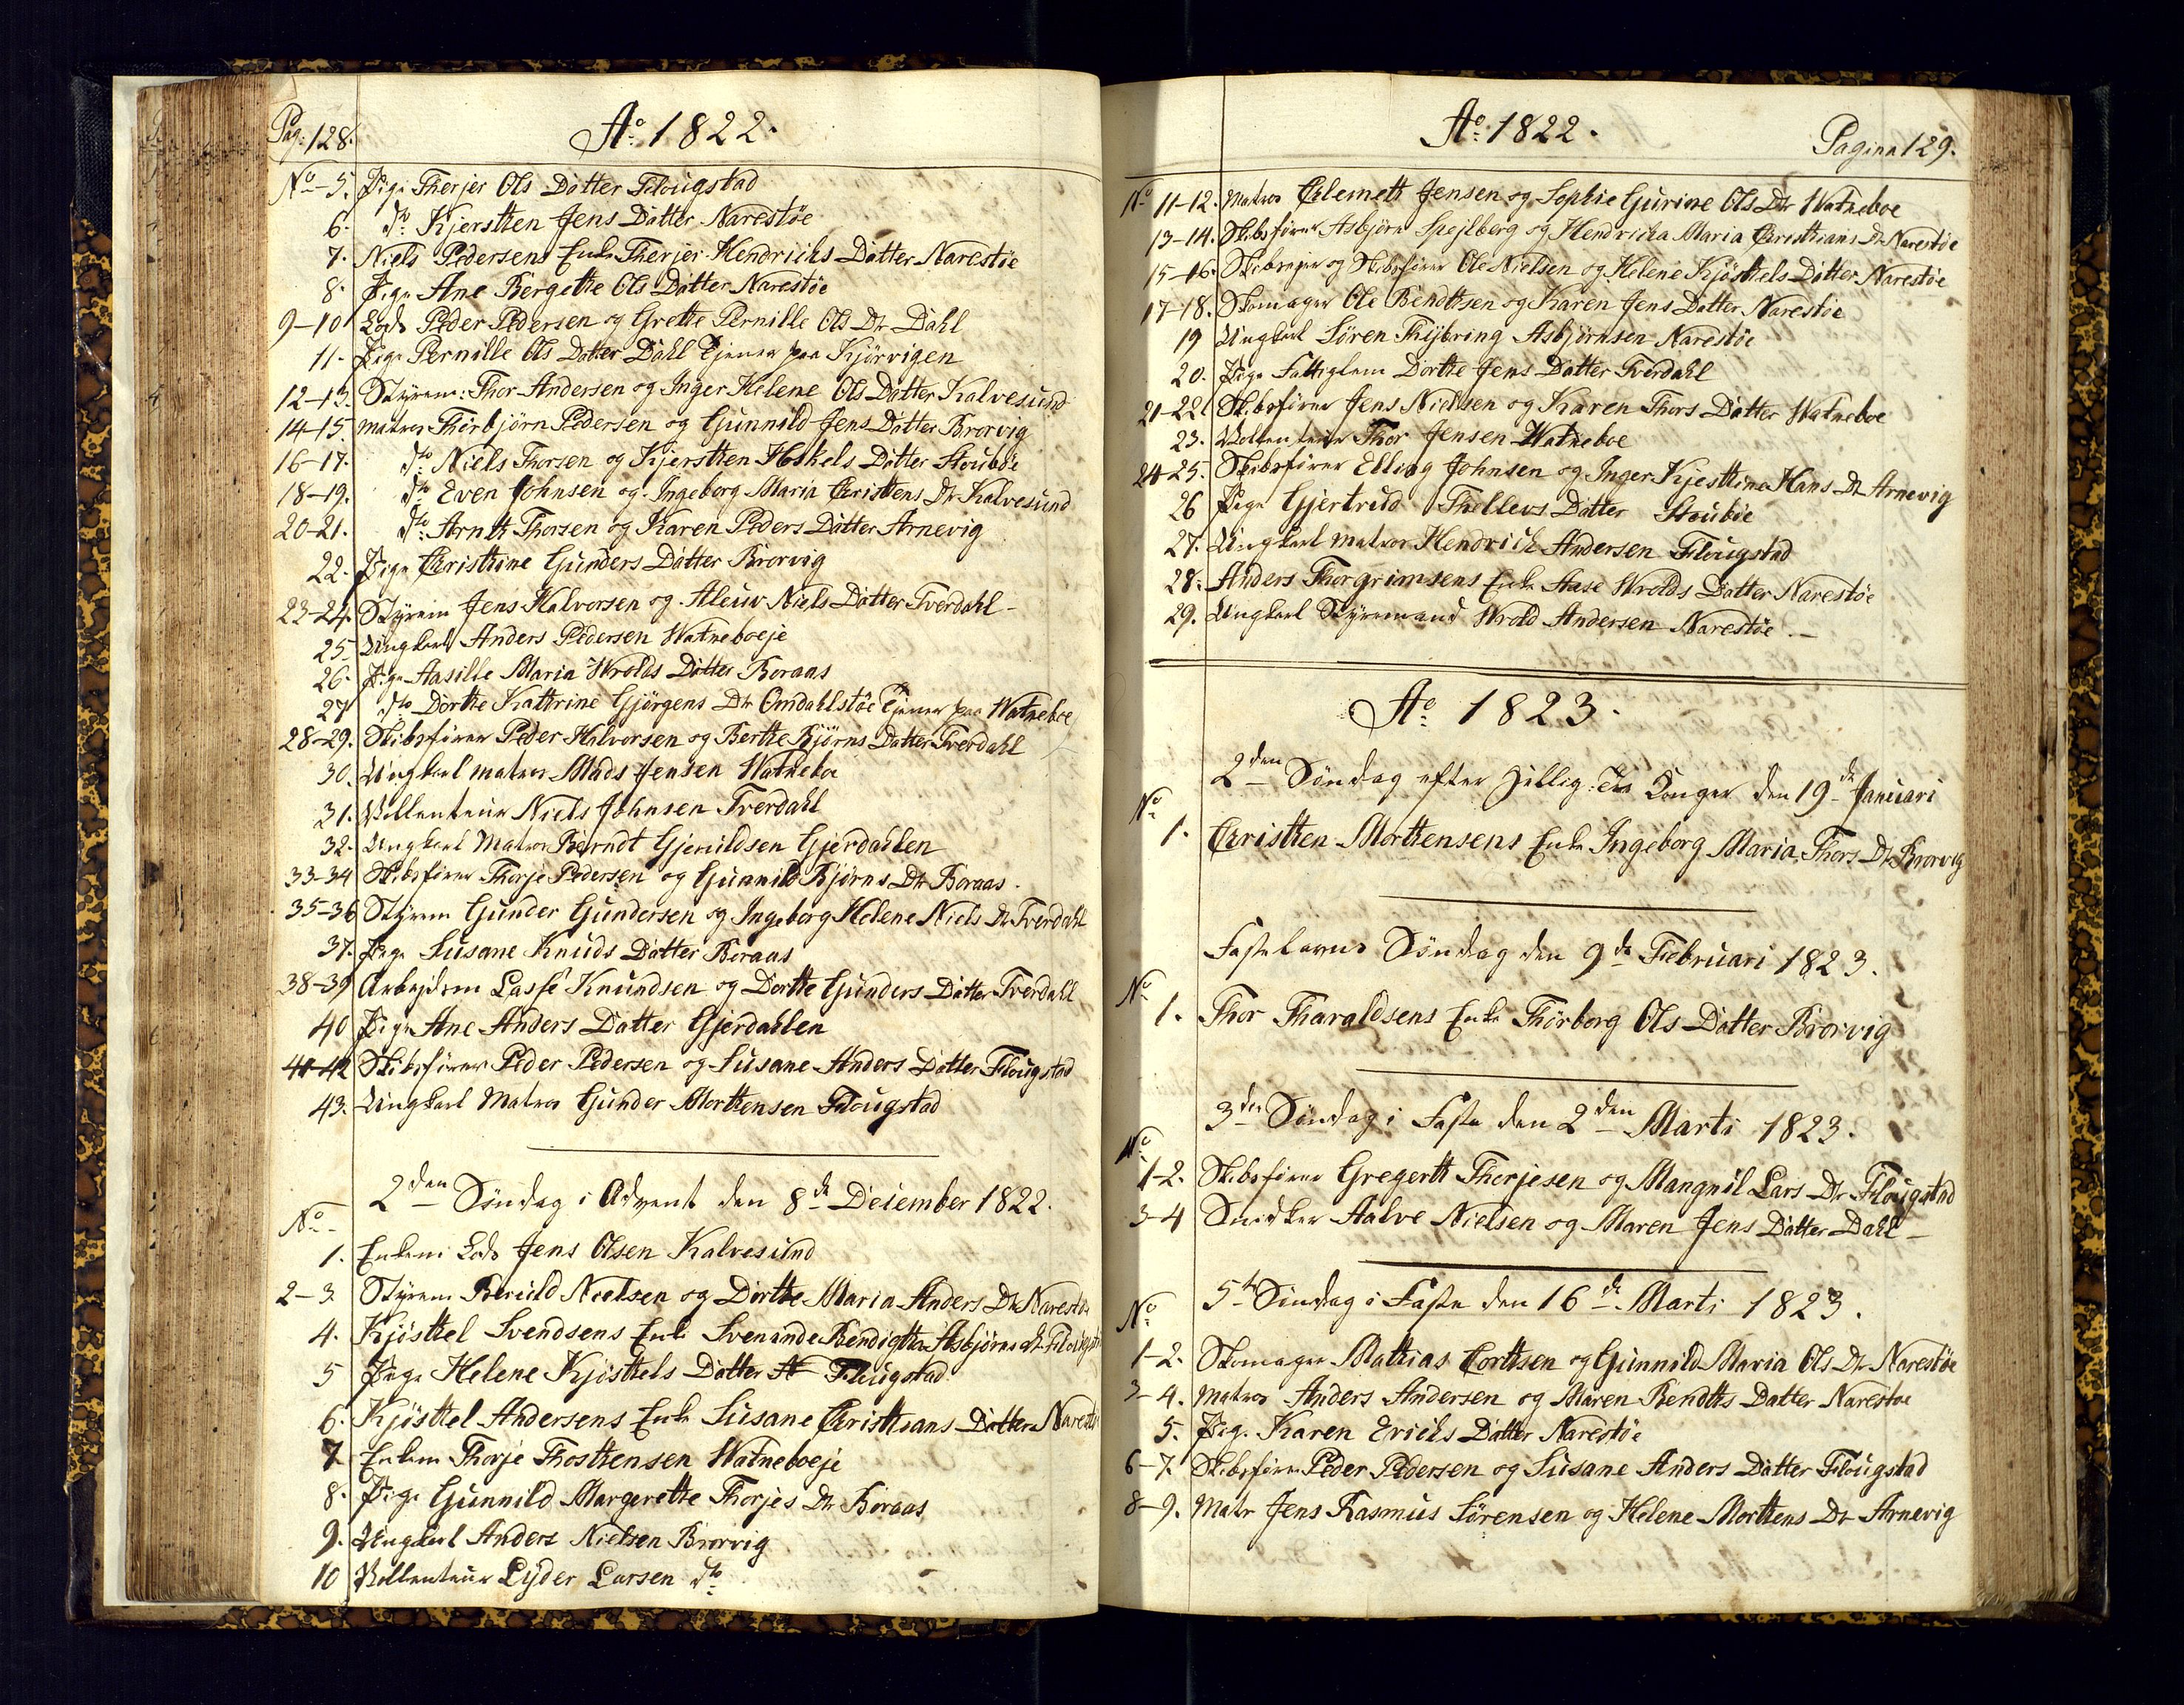 Pag: 128.
Ao: 1822.
No-5. Pige Therjer Ols Datter Flougstad
6. do: Kjerstten Jens Datter Narestøe
7. Niels Pedersens Enke Therjer Hendrichs Datter Narestøe
8. Pige Ane Bergette Ols Datter Narestøe
9-10 Lods Peder Pedersen og Grette Pernille Ols Dr Dahl
11. Pige Pernille Ols Datter Dahl Tjener paa Kjørvigen
12-13. Styrem: Thor Andersen og Inger Helene Ols Datter Kalvesund
14-15. Matros Thorbjörn Pedersen og Gunnild Jens Datter Brorvig
16-17. do: Niels Thorsen og Kjerstten Eskels Datter Stoubøe
18-19. do Even Johnsen og Ingeborg Maria Christens Dr Kalvesund
20-21. do: Arntt Thorsen og Karen Peders Datter Arnevig
22. Pige Christtine Gunders Datter Brorvig
23-24. Styrem Jens Halvorsen og Aleuv Niels Datter Tverdahl
25 Ungkarl Anders Pedersen Watneboeje
26. Pige Aasille Maria Wrolds Datter Boraas
27 do Dortte Kattrine Gjörgens Dtr Omdahlstøe Tjener paa Watneboe
28-29. Skibsfører Peder Halvorsen og Bertte Bjørns Datter Tverdahl
30. Ungkarl Matros Mads Jensen Watneboe
31. Vollenteur Niels Johnsen Tverdahl
32. Ungkarl Matros Berndt Gjeruldsen Gjerdahlen
33-34 Skibsfører Thorje Pedersen og Gunnild Bjørns Dtr Boraas.
35-36 Styrem Gunder Gundersen og Ingeborg Helene Niels Dr Tverdahl
37. Pige Susane Knuds Datter Boraas
38-39 Arbejdsm Lasse Knundsen og Dortte Gunders Datter Tverdahl
40 Pige Ane Anders Datter Gjerdahlen
41-42 Skibsfører Peder Pedersen og Susane Anders Datter Flougstad
43. Ungkarl Matros Gunder Morttensen Flougstad
2den Søndag i Advent den 8de Desember 1822.
No
1. Enkem Lods Jens Olsen Kalvesund
2-3 Styrem Beruld Nielsen og Dortte Maria Anders Dr Narestøe
4. Kjösttel Svendsens Enke Svenunde Bendigtta Asbjörns Dr
5 Pige Helene Kjösttels Datter Flougstad
6. Kjösttel Andersens Enke Susane Christtians Datter
7 Enkem Thorje Thosttensen Watneboeje
8. Pige Gunnild Margerette Thorjes Dr Boraas
9. Ungkarl Anders Nielsen Brorvig
10 Vollenteur Lyder Larsen do
Ao: 1822.
Pagina 129.
No 11-12. Matros Clemett Jensen og Sophie Gurine Ols Dtr Watneboe
13-14. Skibsfører Asbjørn Spejlberg og Hendricha Maria Christtians Dr Narestøe
15-16. Skibsrejer og Skibsfører Ole Nielsen og Helene Kjösttels Datter Narestøe
17-18. Skomager Ole Bendttsen og Karen Jens Datter Narestøe
19 Ungkarl Søren Thybring Asbjørnsen Narestøe
20. Pige Fattiglem Dortte Jens Datter Tverdahl
21-22. Skibsfører Jens Nielsen og Karen Thors Datter Watneboe
23. Vollenteur Thor Jensen Watneboe
24-25. Skibsfører Elling Johnsen og Inger Kjesttine Hans Dr Arnevig
26 Pige Gjertrud Thellevs Datter Stoubøe
27. Ungkarl Matros Hendrich Andersen Flougstad
28. Anders Thorgrimsens Enke Aase Wrolds Datter Narestøe
29. Ungkarl Styremand Wrold Andersen Narestøe
Ao: 1823.
2den Søndag efter Hellig: Tre Konger den 19de Januari
No
1. Christten Morttensens Enke Ingeborg Maria Thors Dr Brorvig
Fastelavns Søndag den 9de Februari 1823.
No
1. Thor Tharaldsens Enke Thørborg Ols Datter Brorvig
3die Søndag i Faste den 2den Marti 1823.
No
1-2. Skibsfører Gregertt Therjesen og Mangnil Lars Dr Flougstad
3-4 Snidker Aalve Nielsen og Maren Jens Datter Dahl
5te Søndag i Faste den 16de Marti 1823.
No
1-2. Skomager Mathias Corttsen og Gunnild Maria Ols Dr Narestøe
3-4. Matros Anders Andersen og Maren Bendtts Datter Narestøe
5. Pige Karen Erichs Datter Narestøe
6-7. Skibsfører Peder Pedersen og Susane Anders Datter Flougstad
8-9. Matr Jens Rasmus Sørensen og Helene Morttens Dr Arnevig